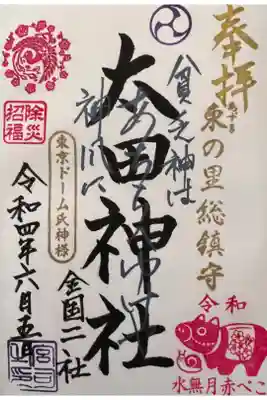 奉拝
東の里総鎮守
貧乏神は
太田神社
東京ドーム氏神様
全国二社
令和四年六月五日
除災
招福
令和
水無月赤べこ